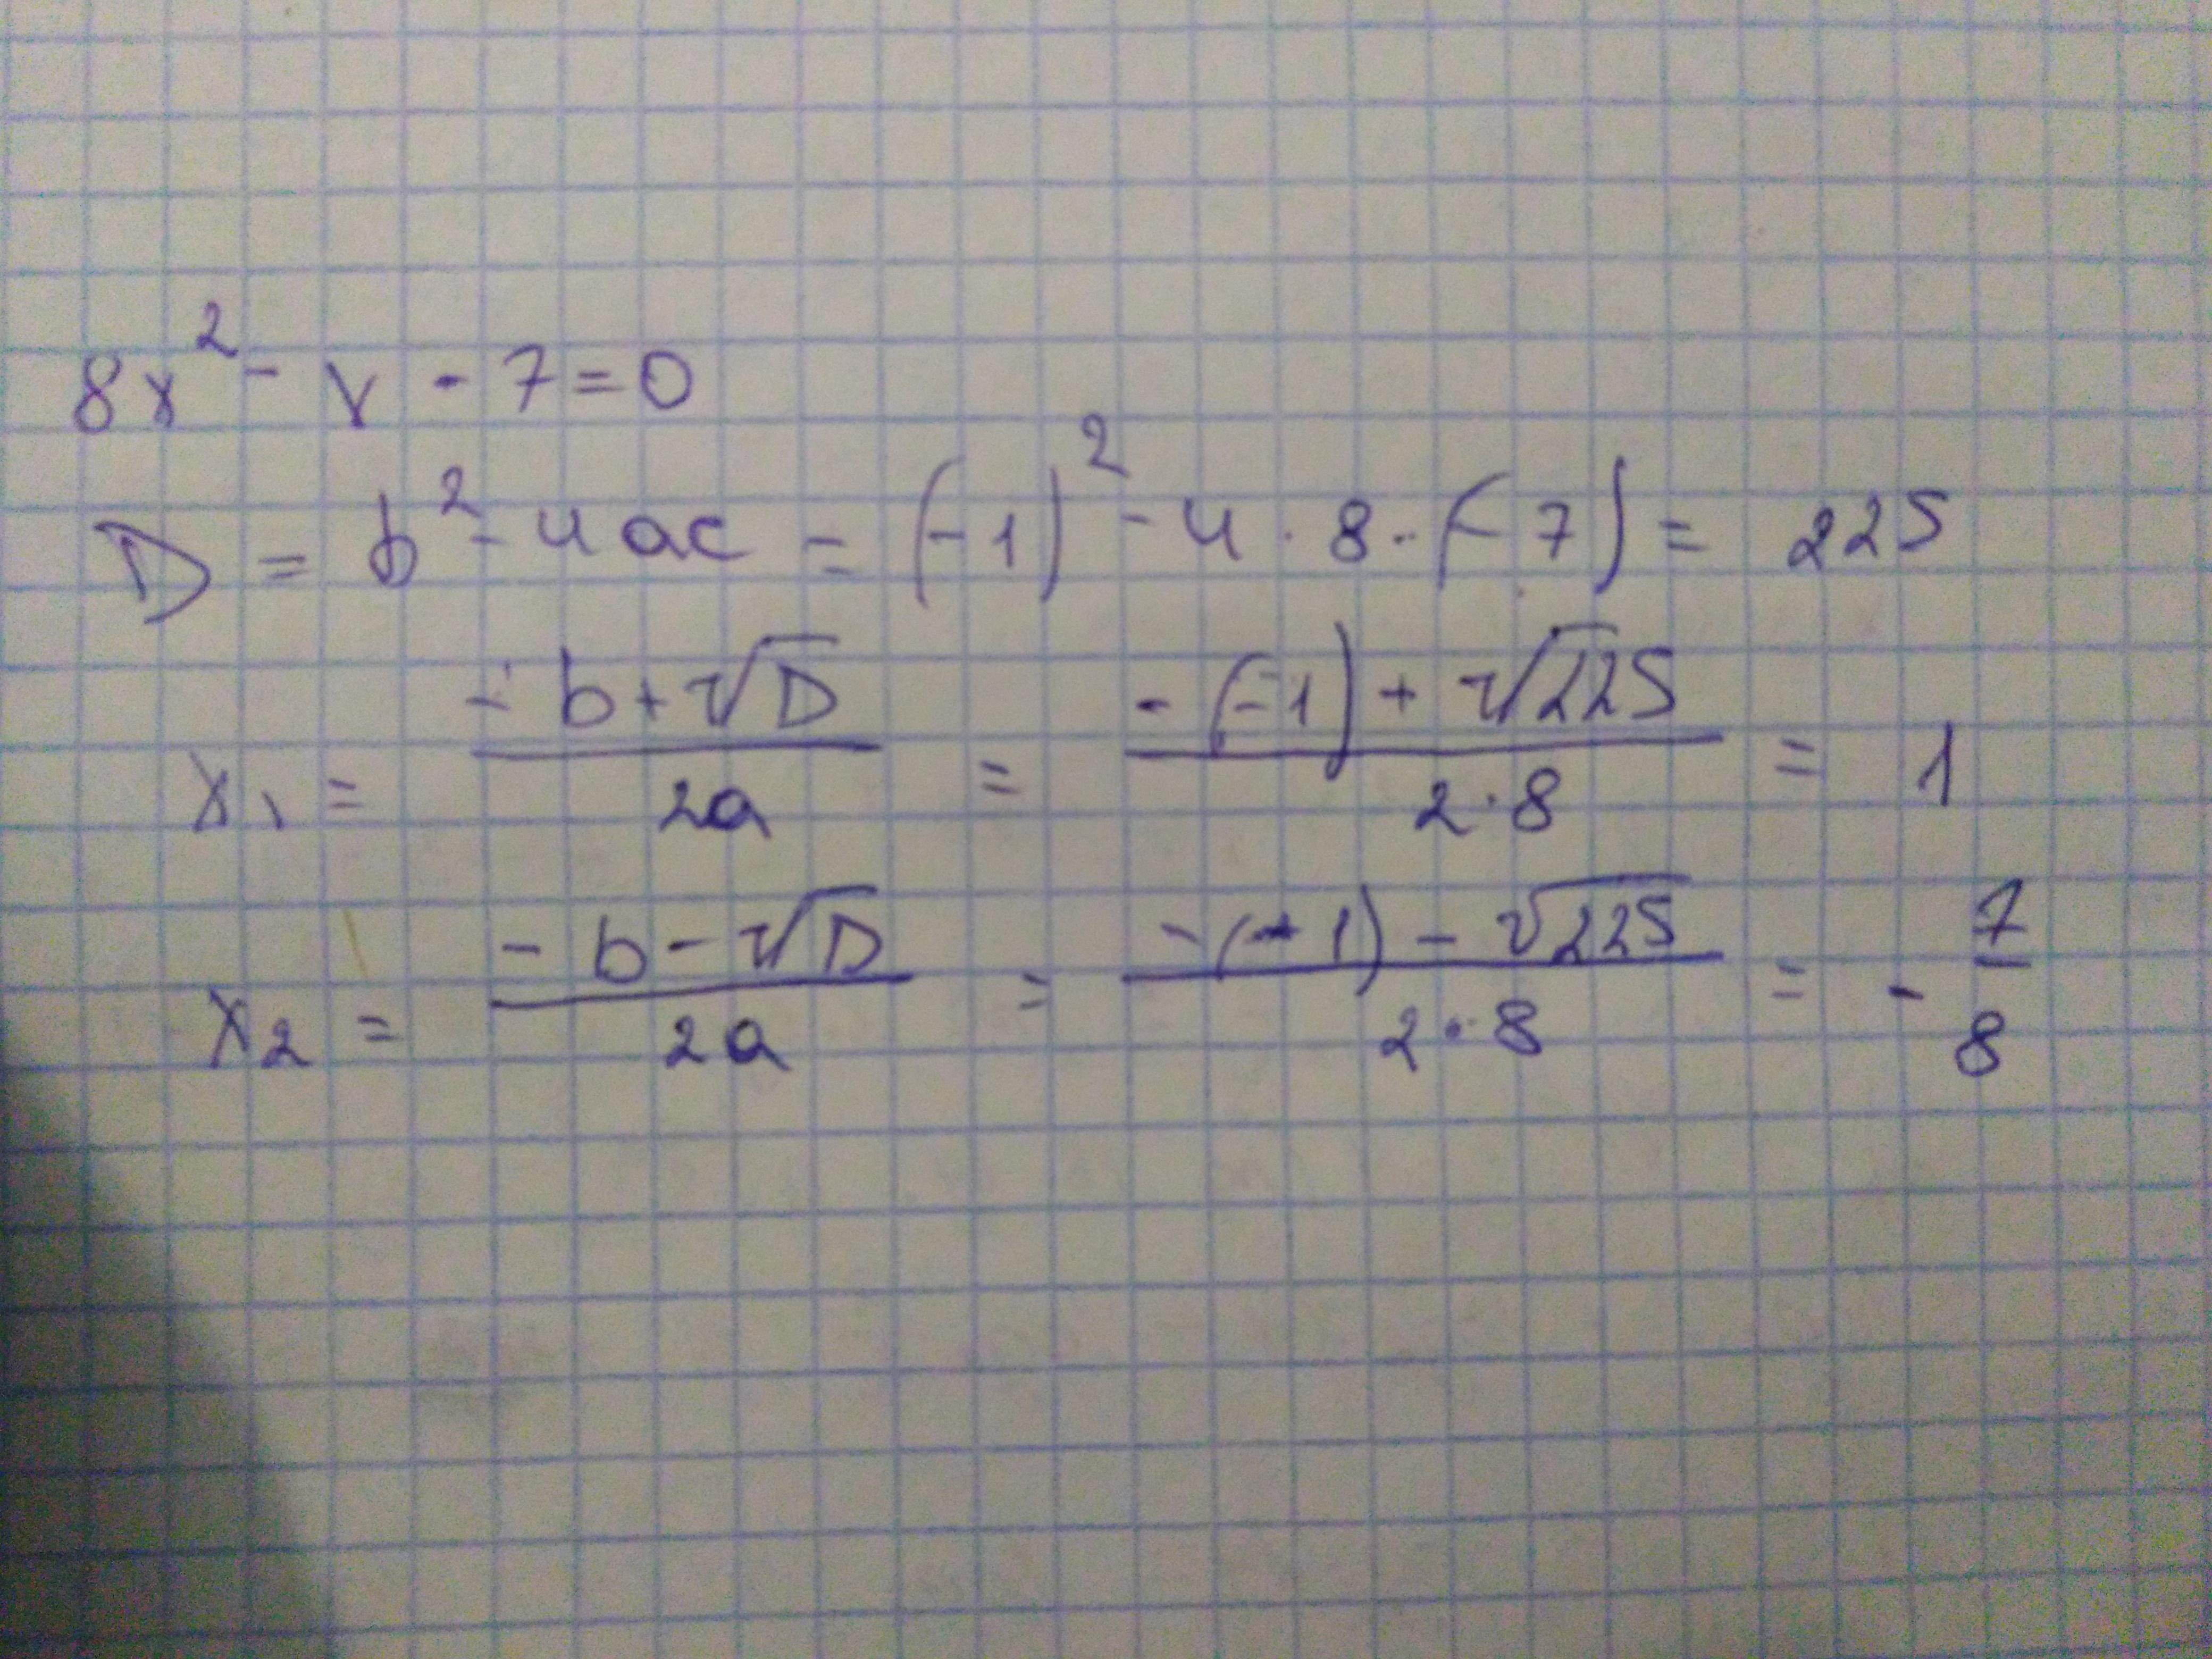 8x² - x - 7 = 0
D = b² - 4ac = (-1)² - 4 · 8 · (-7) = 225
x₁ = (-b + √D) / 2a = (-(-1) + √225) / (2 · 8) = 1
x₂ = (-b - √D) / 2a = (-(-1) - √225) / (2 · 8) = - 7/8